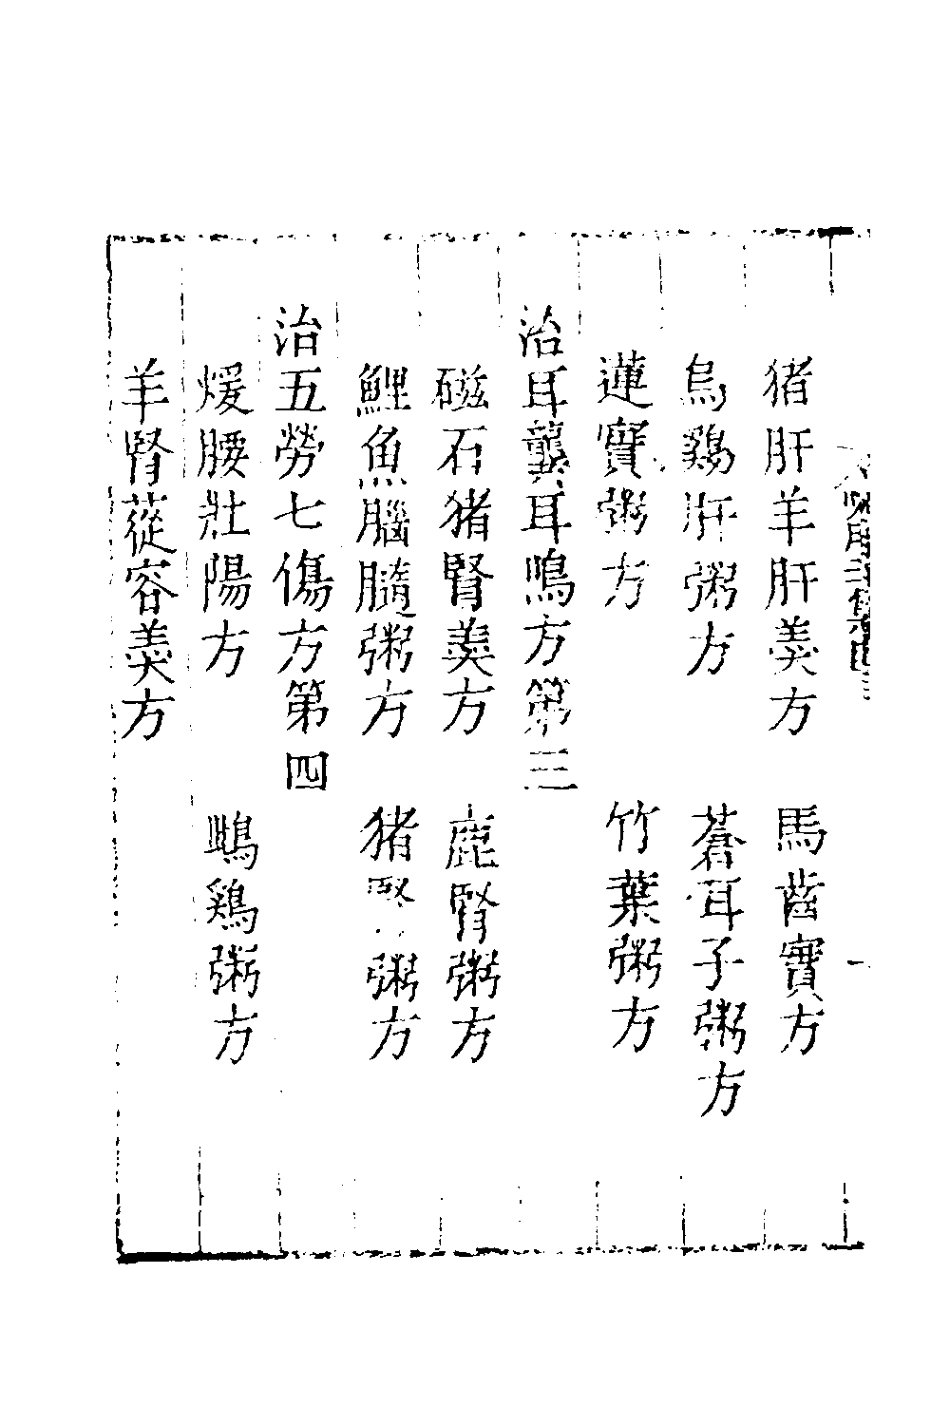 猪肝羊肝羹方　馬齒實方
烏鷄肝粥方　蒼耳子粥方
蓮實粥方　竹葉粥方
治耳聾耳鳴方第三
磁石猪腎羹方　鹿腎粥方
鯉魚腦髓粥方　猪腎粥方
治五勞七傷方第四
煖腰壯陽方　鴨鷄粥方
羊腎蓯容羹方